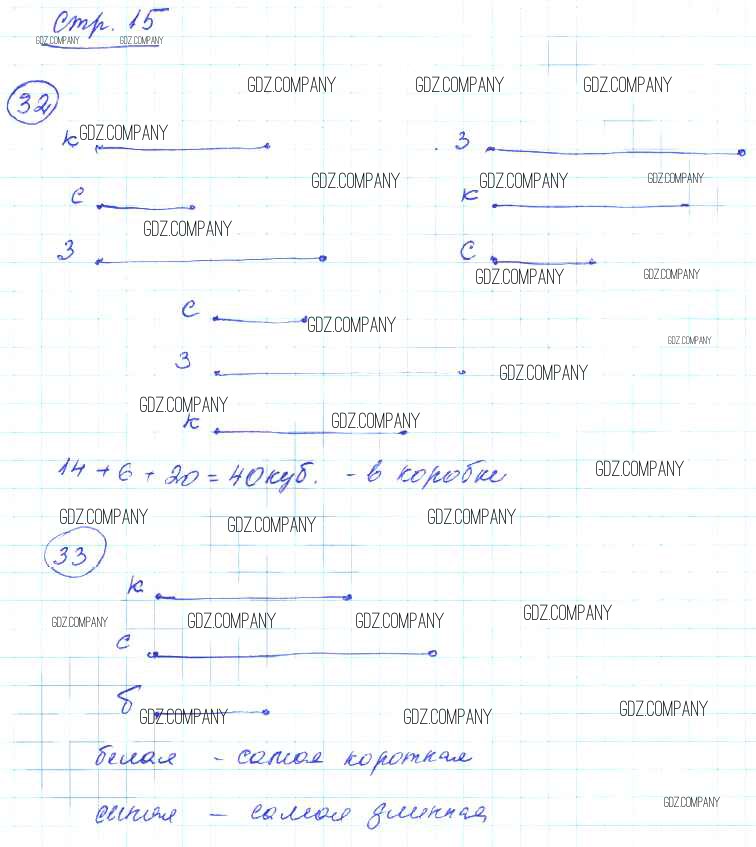 Стр. 15
GDZ.COMPANY GDZ.COMPANY
GDZ.COMPANY GDZ.COMPANY GDZ.COMPANY
32
К GDZ.COMPANY З
GDZ.COMPANY GDZ.COMPANY GDZ.COMPANY
С К
GDZ.COMPANY
З С
GDZ.COMPANY GDZ.COMPANY
С GDZ.COMPANY
GDZ.COMPANY
З GDZ.COMPANY
GDZ.COMPANY
К GDZ.COMPANY
14 + 6 + 20 = 40 куб. - в коробке GDZ.COMPANY
GDZ.COMPANY GDZ.COMPANY GDZ.COMPANY
33
К
GDZ.COMPANY GDZ.COMPANY GDZ.COMPANY GDZ.COMPANY
С
Б GDZ.COMPANY GDZ.COMPANY GDZ.COMPANY
белая - самая короткая
синяя - самая длинная GDZ.COMPANY